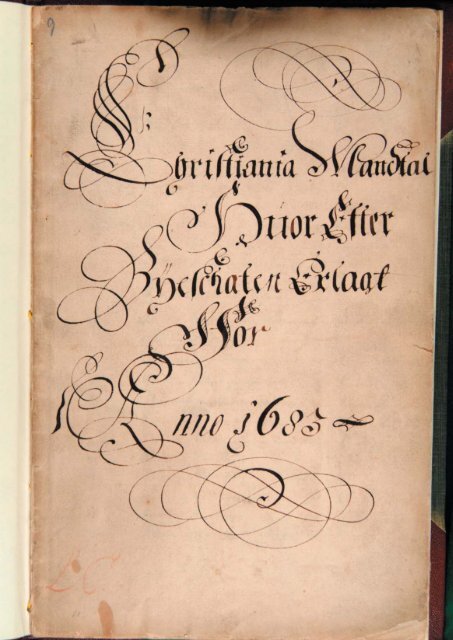 9
Christiania Mandtal
Huor Efter
Byeschaten Erlagt
For
Anno 1683
L C